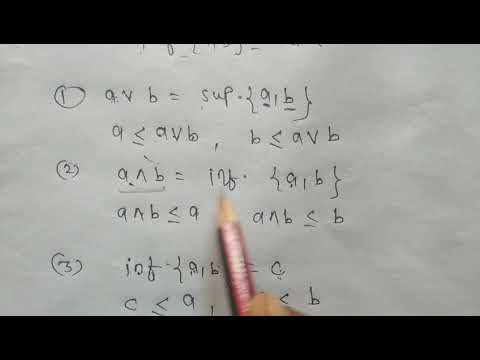 (1) a ∨ b = sup. {a, b}
a ≤ a∨b , b ≤ a∨b
(2) a ∧ b = inf. {a, b}
a∧b ≤ a a∧b ≤ b
(3) inf. {a, b = c
c ≤ a, ≤ b